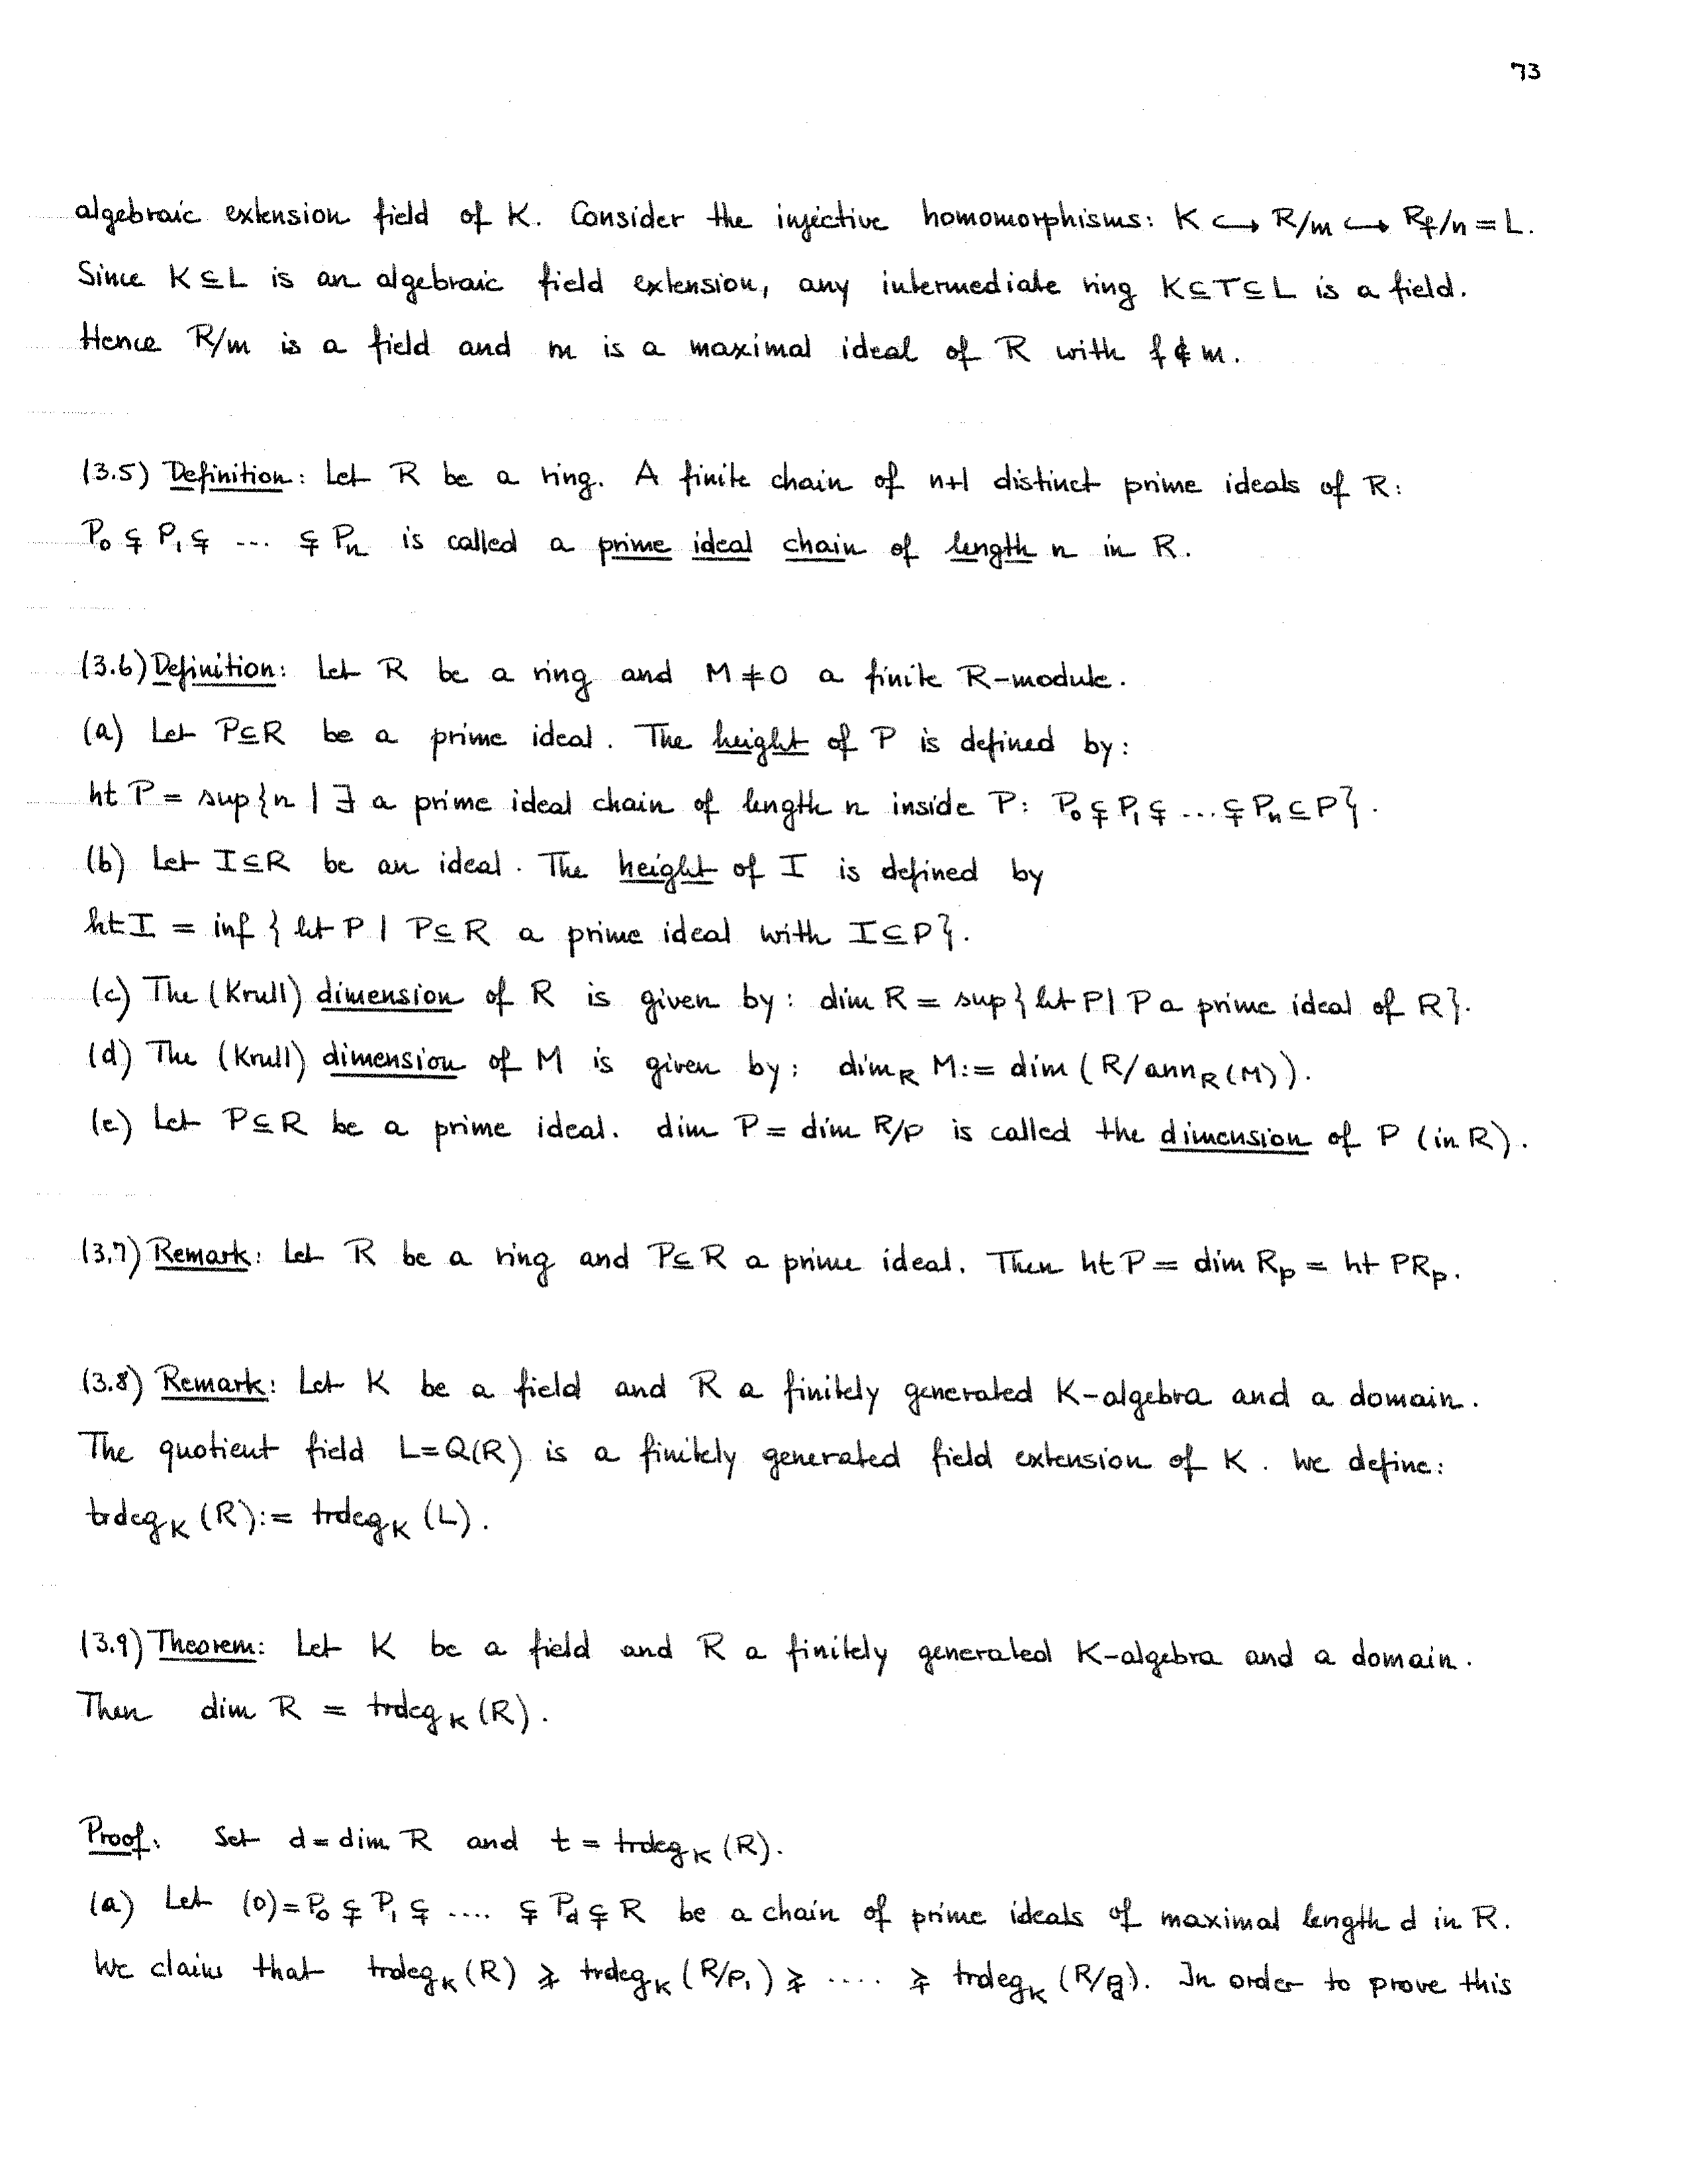 73
algebraic extension field of K. Consider the injective homomorphisms: K ↪ R/m ↪ R_f/n = L.
Since K ⊆ L is an algebraic field extension, any intermediate ring K ⊆ T ⊆ L is a field.
Hence R/m is a field and m is a maximal ideal of R with f ∉ m.
(3.5) Definition: Let R be a ring. A finite chain of n+1 distinct prime ideals of R:
P₀ ⊊ P₁ ⊊ ... ⊊ Pₙ is called a prime ideal chain of length n in R.
(3.6) Definition: Let R be a ring and M ≠ 0 a finite R-module.
(a) Let P ⊆ R be a prime ideal. The height of P is defined by:
ht P = sup{n | ∃ a prime ideal chain of length n inside P: P₀ ⊊ P₁ ⊊ ... ⊊ Pₙ ⊆ P}.
(b) Let I ⊆ R be an ideal. The height of I is defined by
ht I = inf{ht P | P ⊆ R a prime ideal with I ⊆ P}.
(c) The (Krull) dimension of R is given by: dim R = sup{ht P | P a prime ideal of R}.
(d) The (Krull) dimension of M is given by: dim_R M := dim (R/ann_R(M)).
(e) Let P ⊆ R be a prime ideal. dim P = dim R/P is called the dimension of P (in R).
(3.7) Remark: Let R be a ring and P ⊆ R a prime ideal. Then ht P = dim R_P = ht PR_P.
(3.8) Remark: Let K be a field and R a finitely generated K-algebra and a domain.
The quotient field L=Q(R) is a finitely generated field extension of K. We define:
trdeg_K (R) := trdeg_K (L).
(3.9) Theorem: Let K be a field and R a finitely generated K-algebra and a domain.
Then dim R = trdeg_K (R).
Proof: Set d = dim R and t = trdeg_K (R).
(a) Let (0) = P₀ ⊊ P₁ ⊊ .... ⊊ P_d ⊊ R be a chain of prime ideals of maximal length d in R.
We claim that trdeg_K (R) ⋧ trdeg_K (R/P₁) ⋧ .... ⋧ trdeg_K (R/P_d). In order to prove this